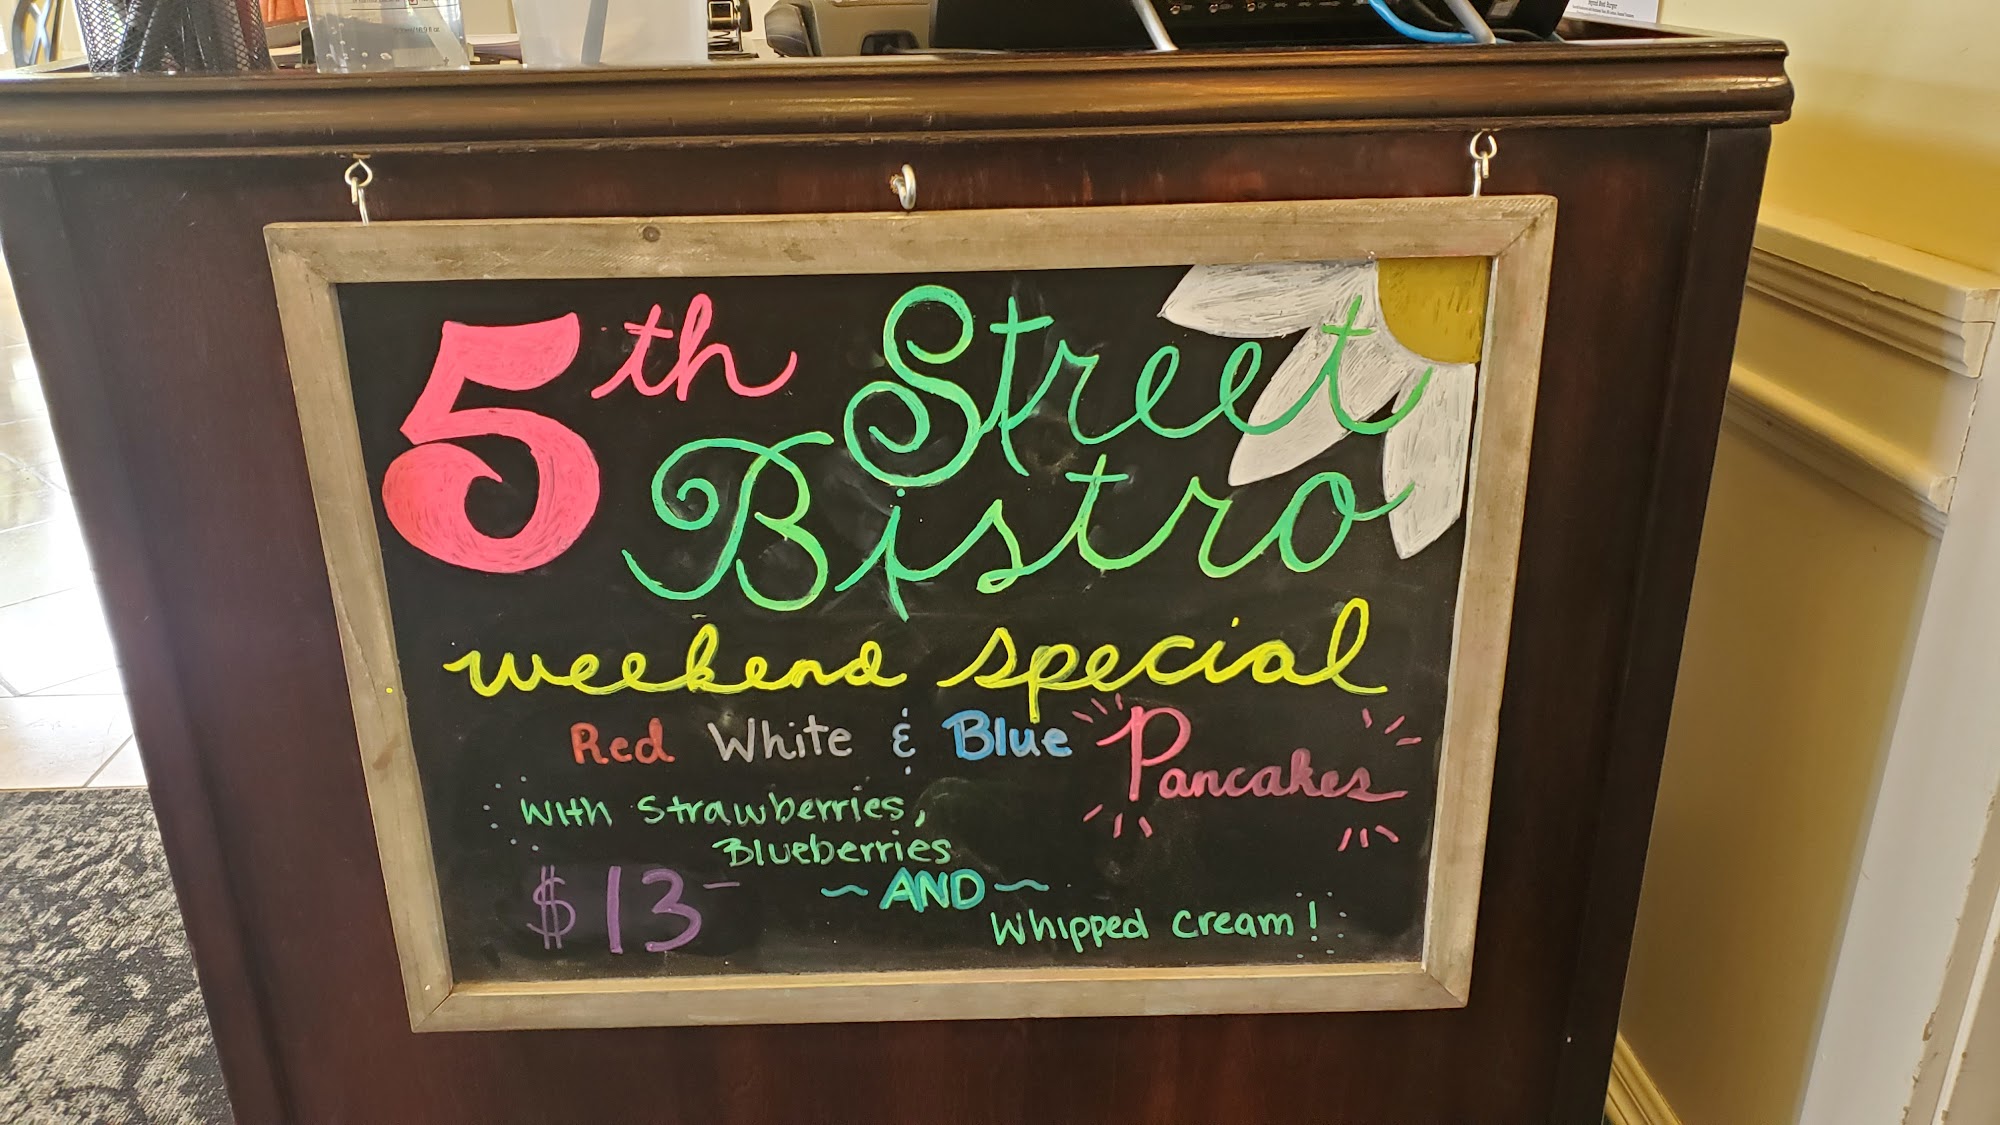 5th Street
Bistro
weekend special
Red White & Blue Pancakes
with strawberries,
Blueberries
$13- ~AND~
Whipped cream!